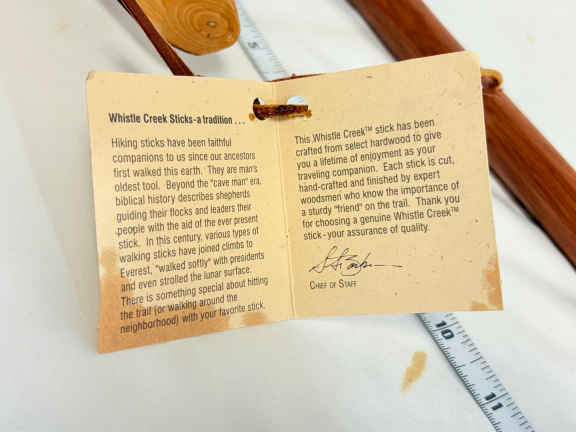 Whistle Creek Sticks-a tradition . . .
Hiking sticks have been faithful
companions to us since our ancestors
first walked this earth. They are man's
oldest tool. Beyond the "cave man" era,
biblical history describes shepherds
guiding their flocks and leaders their
people with the aid of the ever present
stick. In this century, various types of
walking sticks have joined climbs to
Everest, "walked softly" with presidents
and even strolled the lunar surface.
There is something special about hitting
the trail (or walking around the
neighborhood) with your favorite stick.
This Whistle Creek™ stick has been
crafted from select hardwood to give
you a lifetime of enjoyment as your
traveling companion. Each stick is cut,
hand-crafted and finished by expert
woodsmen who know the importance of
a sturdy "friend" on the trail. Thank you
for choosing a genuine Whistle Creek™
stick - your assurance of quality.
Chief of Staff
5
10
11